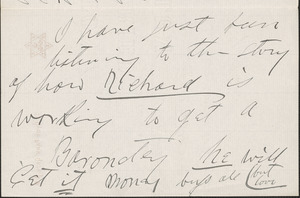 I have just been
listening to the story
of how Richard is
working to get a
Baronetcy he will
Get it money buys all (but
love